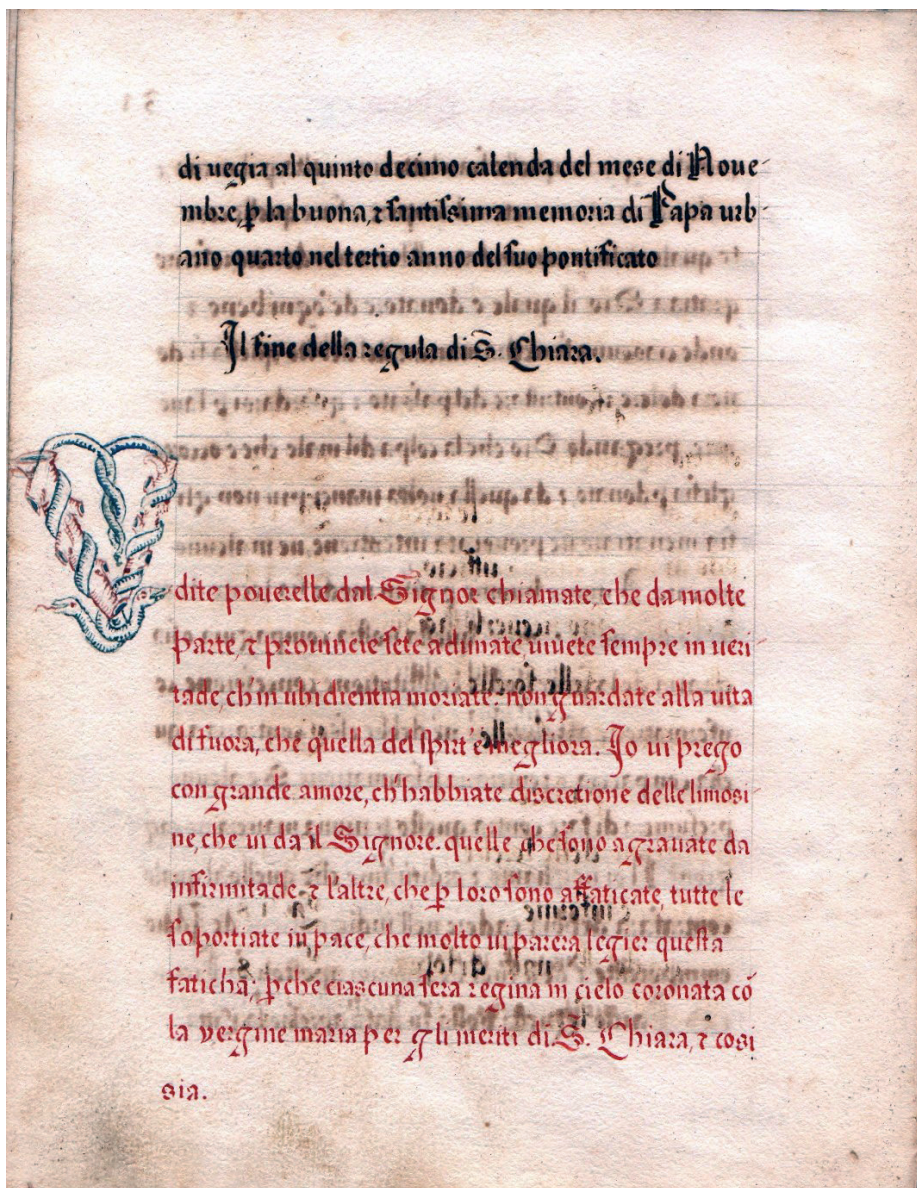 di uegia al quinto decimo calenda del mese di Noue-
mbre, p̄ la buona, ⁊ santissima memoria di Papa urb-
ano quarto nel tertio anno del suo pontificato
Il fine della regula di S̄. Chiara.
V
dite pouerelle dal Signor chiamate, che da molte
parte, ⁊ prouincie sete adunate, uiuete sempre in ueri-
tade, ch'in ubidientia moriate. non guardate alla uita
di fuora, che quella del spirt'è megliora. Io ui prego
con grande amore, ch'habbiate discretione delle limosi-
ne, che ui da il Signore. quelle che sono agrauate da
infirmitade. ⁊ l'altre, che p̄ loro sono affaticate, tutte le
soportiate in pace, che molto ui parera legier questa
faticha, p̄che ciascuna sera regina in cielo coronata cō
la vergine maria per gli meriti di S. Chiara, ⁊ cosi
sia.